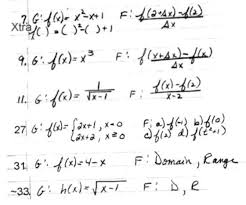 7. G: f(x) = x²-x+1 F: f(2+Δx)-f(2) / Δx
Xtra f( ) = ( )²-( )+1
9. G: f(x) = x³ F: f(x+Δx)-f(x) / Δx
11. G: f(x) = 1/√x-1 F: f(x)-f(2) / x-2
27 G: f(x) = {2x+1, x<0 F: a) f(-1) b) f(0)
2x+2, x≥0 c) f(2) d) f(t²+1)
31. G: f(x) = 4-x F: Domain, Range
~33. G: h(x) = √x-1 F: D, R